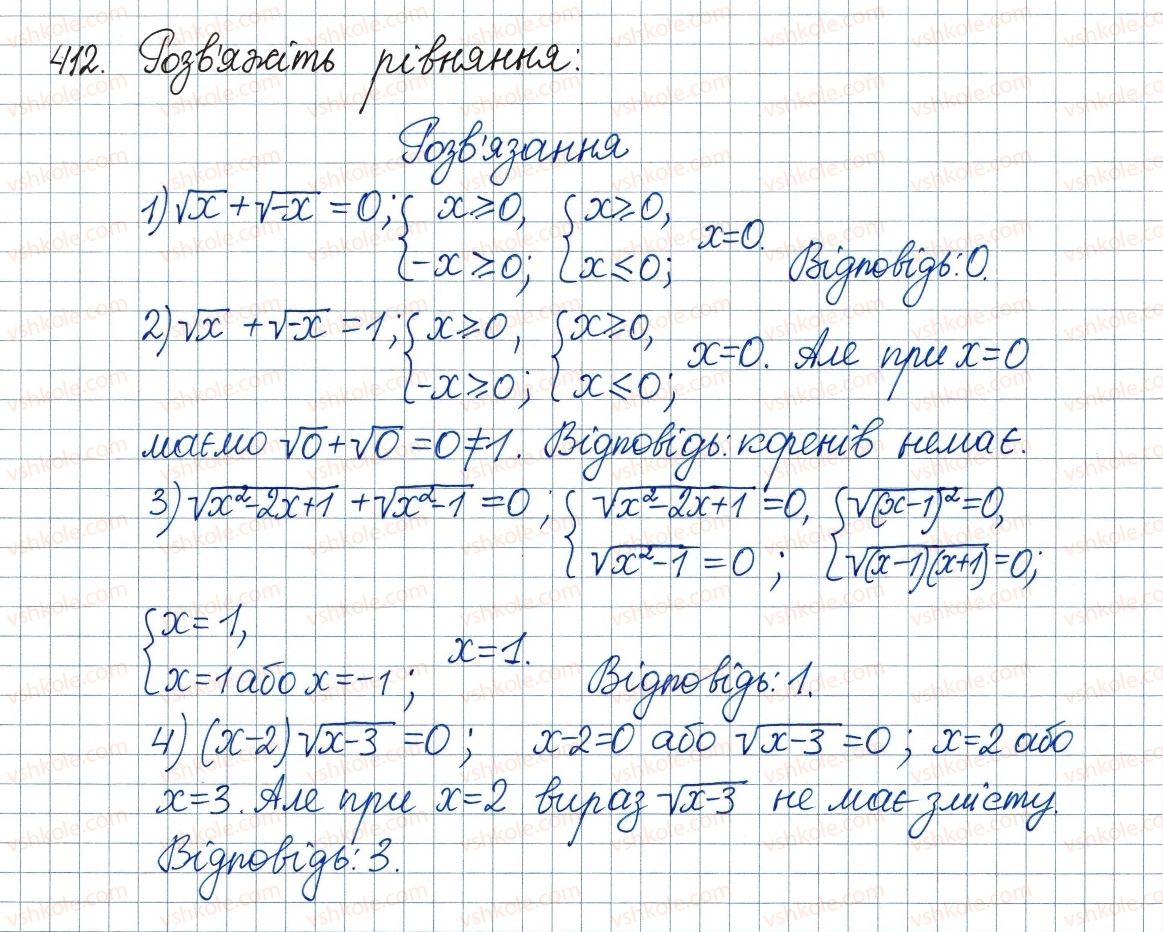 412. Розв'яжіть рівняння:
Розв'язання
1) √x + √-x = 0; { x ≥ 0, -x ≥ 0; { x ≥ 0, x ≤ 0; x = 0. Відповідь: 0.
2) √x + √-x = 1; { x ≥ 0, -x ≥ 0; { x ≥ 0, x ≤ 0; x = 0. Але при x = 0
маємо √0 + √0 = 0 ≠ 1. Відповідь: коренів немає.
3) √(x²-2x+1) + √(x²-1) = 0; { √(x²-2x+1) = 0, √(x²-1) = 0; { √((x-1)²) = 0, √((x-1)(x+1)) = 0;
{ x = 1, x = 1 або x = -1; x = 1. Відповідь: 1.
4) (x-2)√(x-3) = 0; x-2=0 або √(x-3) = 0; x=2 або
x=3. Але при x=2 вираз √(x-3) не має змісту.
Відповідь: 3.